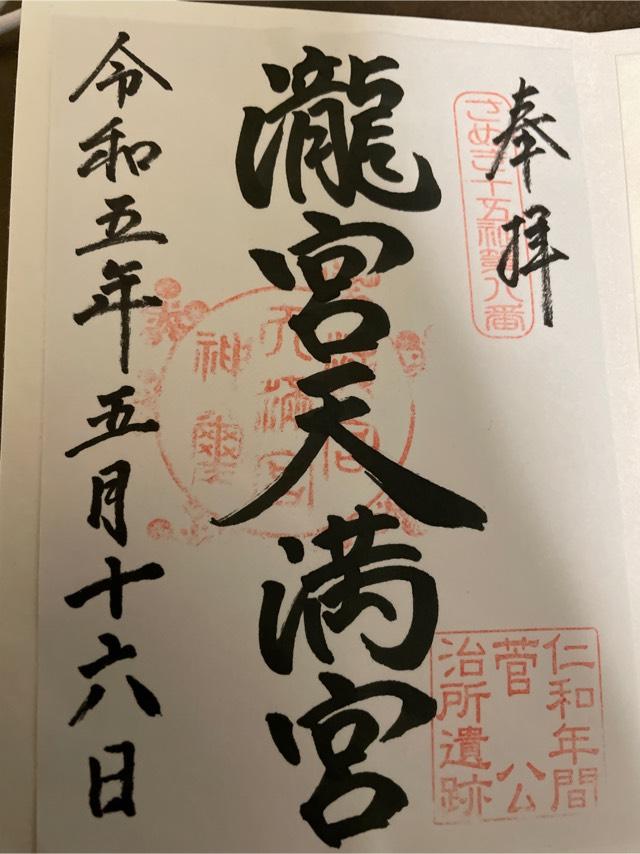 奉拝
さぬき十五社第八番
瀧宮天満宮
瀧宮
天満宮
神璽
仁和年間
菅公
治所遺跡
令和五年五月十六日